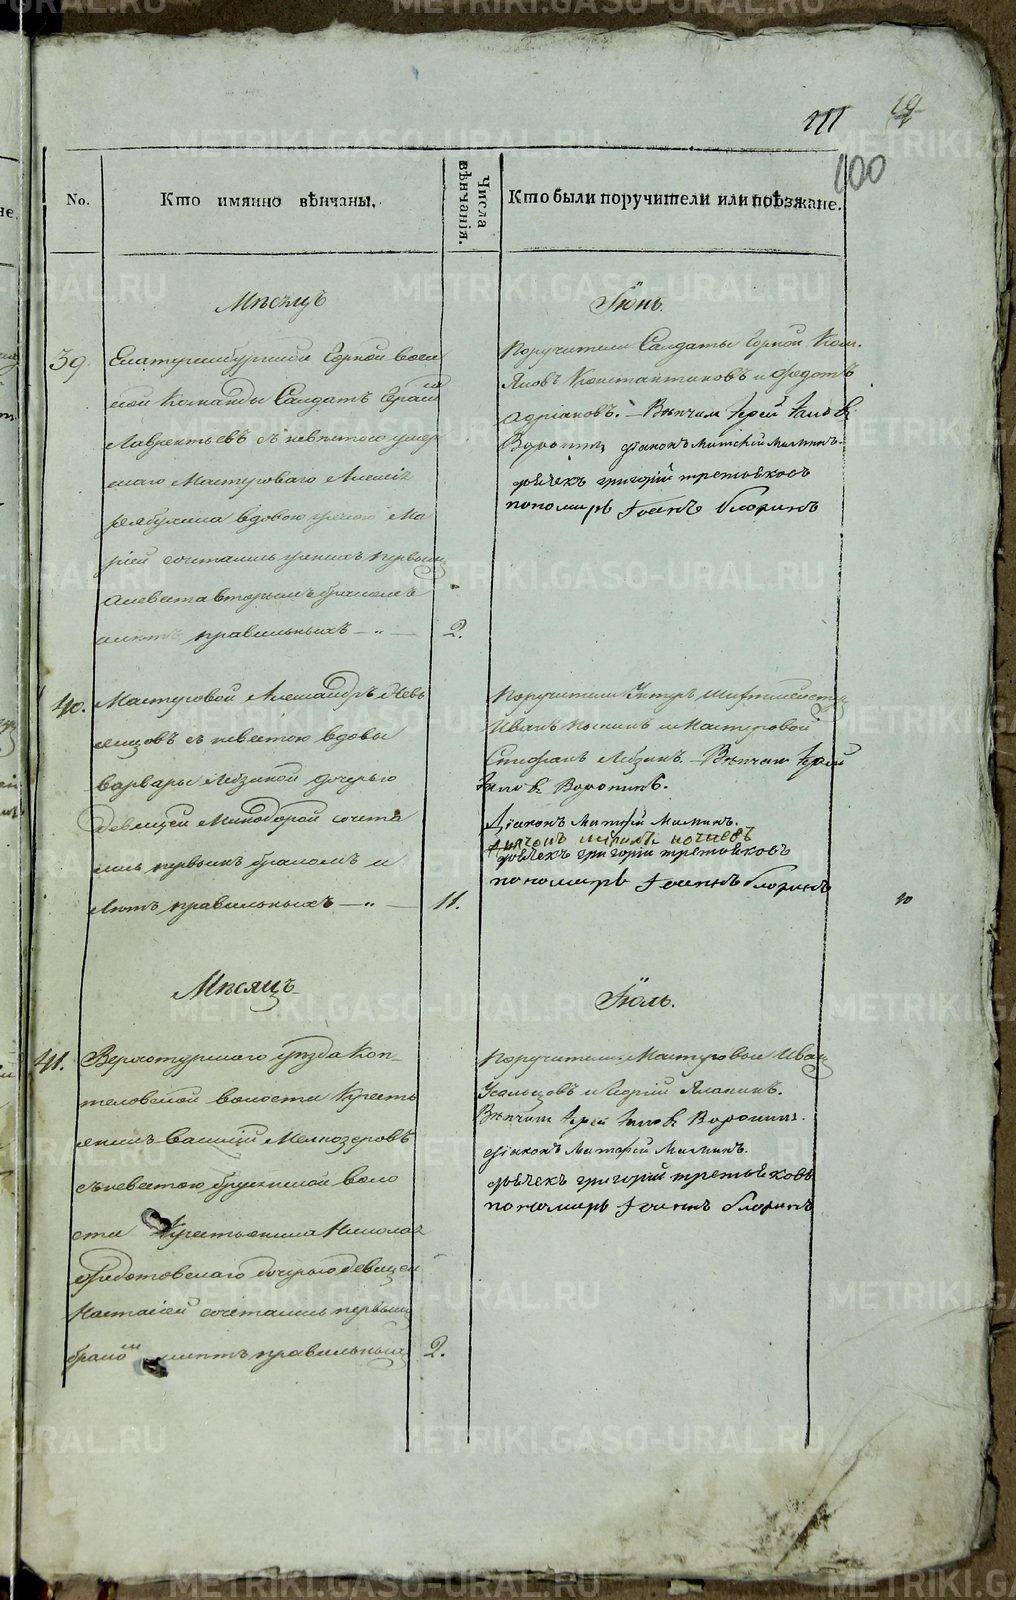 19
111
100
No.
Кто имянно вѣнчаны.
Числа вѣнчанія.
Кто были поручители или поѣзжане.
Мѣсяцъ
Іюнь.
39.
Екатеринбургской Горной воен
ной Команды Солдатъ
Лаврентьевъ съ невѣстою умер
шаго Мастероваго Алексѣя
вдовою женою Ма
рiей сочетались женихъ первымъ
а невѣста вторымъ бракомъ
и лѣтъ правильныхъ — „ —
2.
Поручители Солдаты Горной Ком.
Яковъ Константиновъ и Федотъ
Адріановъ. — Вѣнчали Іерей Іаковъ
Воронинъ, діаконъ Матѳей Мамынъ.
дьячекъ григорій третьяковъ
пономарь Іоаннъ Флоринъ
40.
Мастеровой Александръ Невь
янцовъ съ невѣстою вдовы
Варвары дочерью
девицей Минодорой сочета
лись первымъ бракомъ и
лѣтъ правильныхъ — „ —
11.
Поручители Унтеръ Шихтмейстеръ
Иванъ и Мастеровой
Стефанъ Вѣнчали Іерей
Іаковъ Воронинъ.
Діаконъ Матѳей Мамынъ.
Діяконъ
дьячекъ григорій третьяковъ
пономарь Іоаннъ Флоринъ
10
Мѣсяцъ
Іюль.
41.
Верхотурскаго уѣзда Коп-
теловской волости Крестья
янинъ Василій Мелкозеровъ
съ невѣстою волос
сти Крестьянина Николая
Федотовскаго дочерью девицей
Настасіей сочетались первымъ
бракомъ и лѣтъ правильныхъ
2.
Поручители Мастеровые Иванъ
Усольцовъ и Георгій
Вѣнчали Іерей Іаковъ Воронинъ.
діаконъ Матѳей Мамынъ.
дьячекъ григорій третьяковъ
пономарь Іоаннъ Флоринъ
METRIKI.GASO-URAL.RU